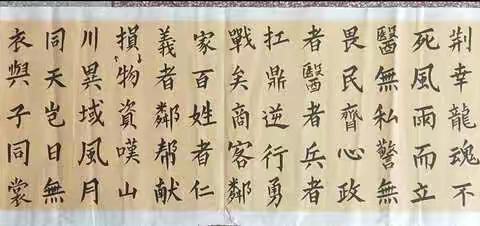 荆幸龍魂不
死風雨而立
醫無私警無
畏民齊心政
者醫者兵者
扛鼎逆行勇
戰矣商客鄰
家百姓者仁
義者鄰帮献
損物資嘆山
川異域風月
同天岂日無
衣與子同裳